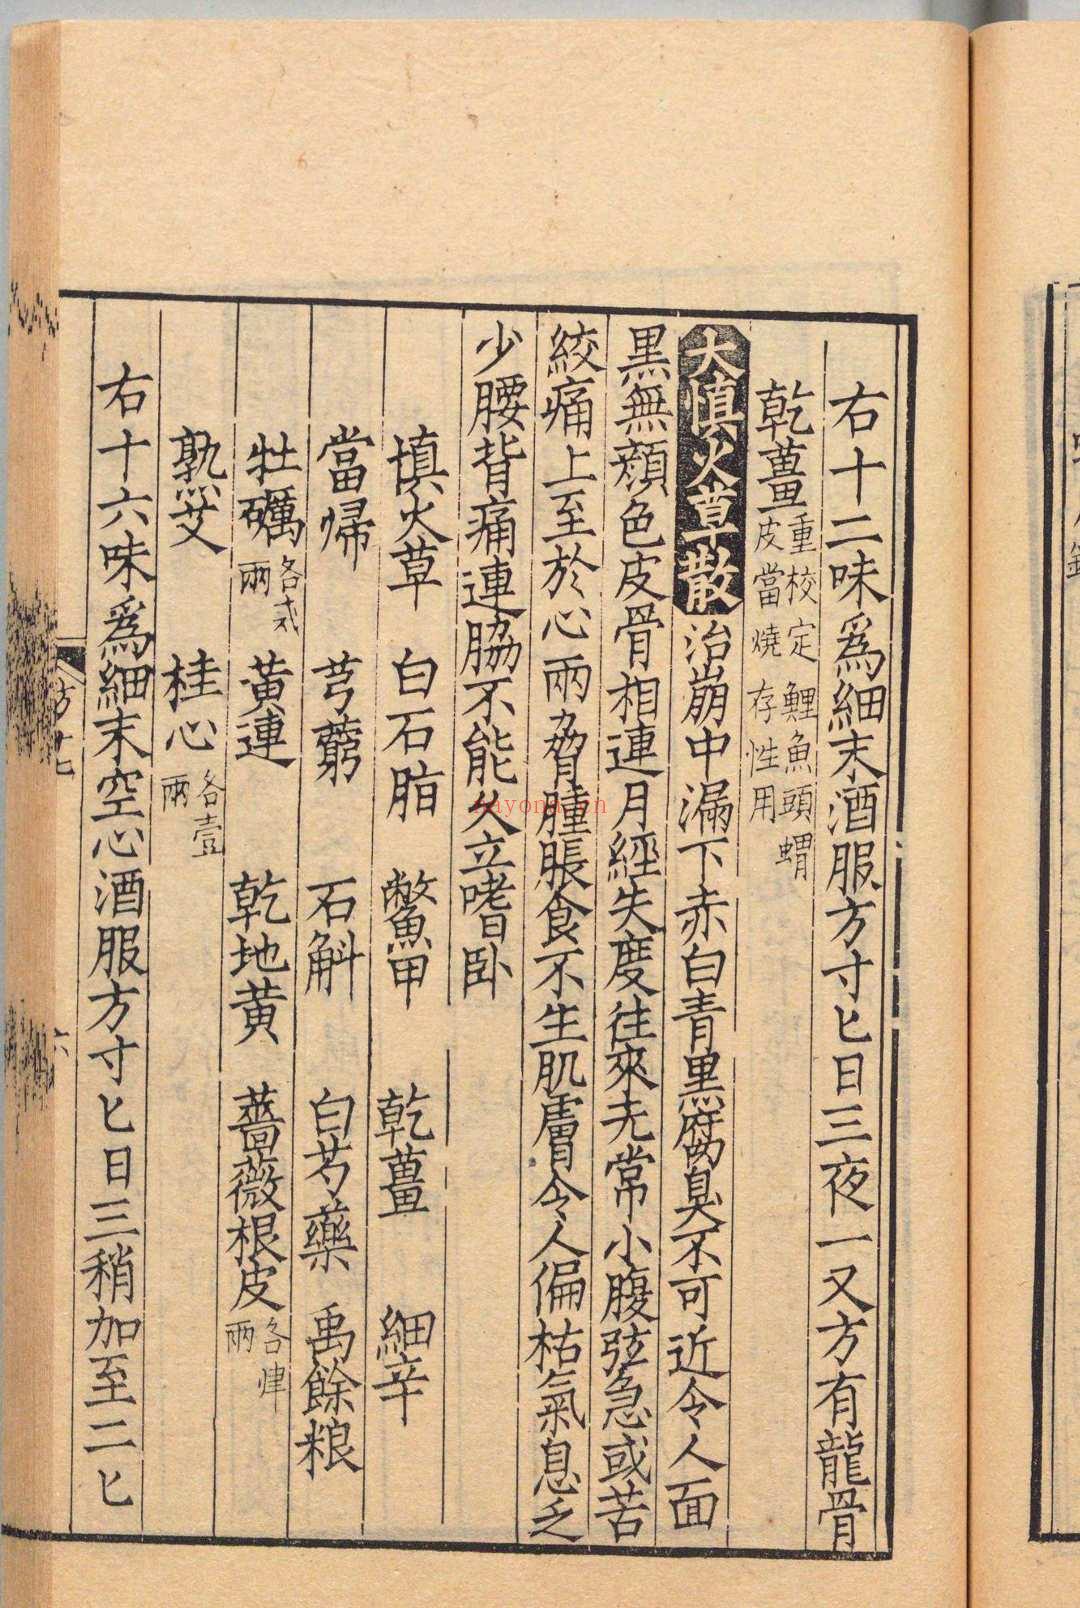 右十二味爲細末酒服方寸匕日三夜一又方有龍骨
乾薑重校定鯉魚頭蝟皮當燒存性用
大慎火草散治崩中漏下赤白青黑腐臭不可近令人面
黑無顔色皮骨相連月經失度往來无常小腹弦急或苦
絞痛上至於心兩脅腫脹食不生肌膚令人偏枯氣息乏
少腰背痛連脇不能久立嗜卧
慎火草　白石脂　鱉甲　乾薑　細辛
當歸　芎藭　石斛　白芍藥　禹餘粮
牡礪各貳兩　黃連　乾地黄　薔薇根皮各肆兩
熟艾　桂心各壹兩
右十六味爲細末空心酒服方寸匕日三稍加至二匕
六